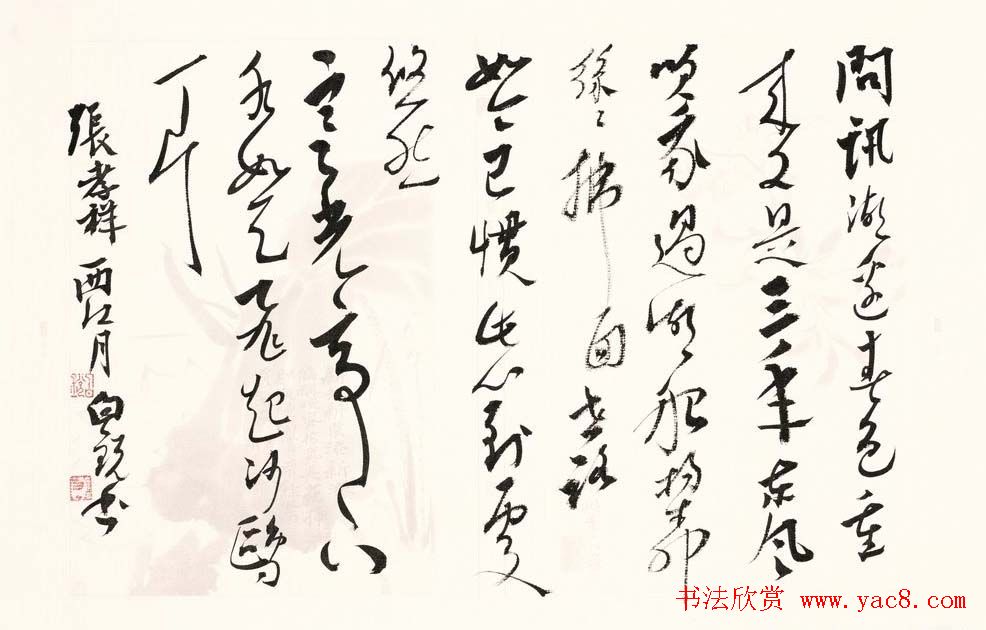 問訊湖邊春色重
来又是三年東風
吹我過湖船楊柳
絲絲拂面世路
如今已慣此心到處
悠然
寒光亭下
水如天飛起沙鷗
一片
張孝祥 西江月 白锐书
书法欣赏 www.yac8.com